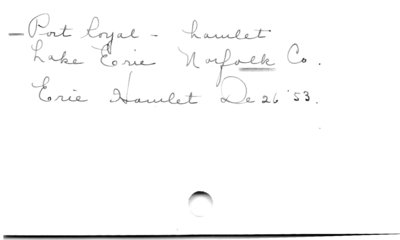 – Port Royal – hamlet
Lake Erie Norfolk Co.
Erie Hamlet De 26 '53.